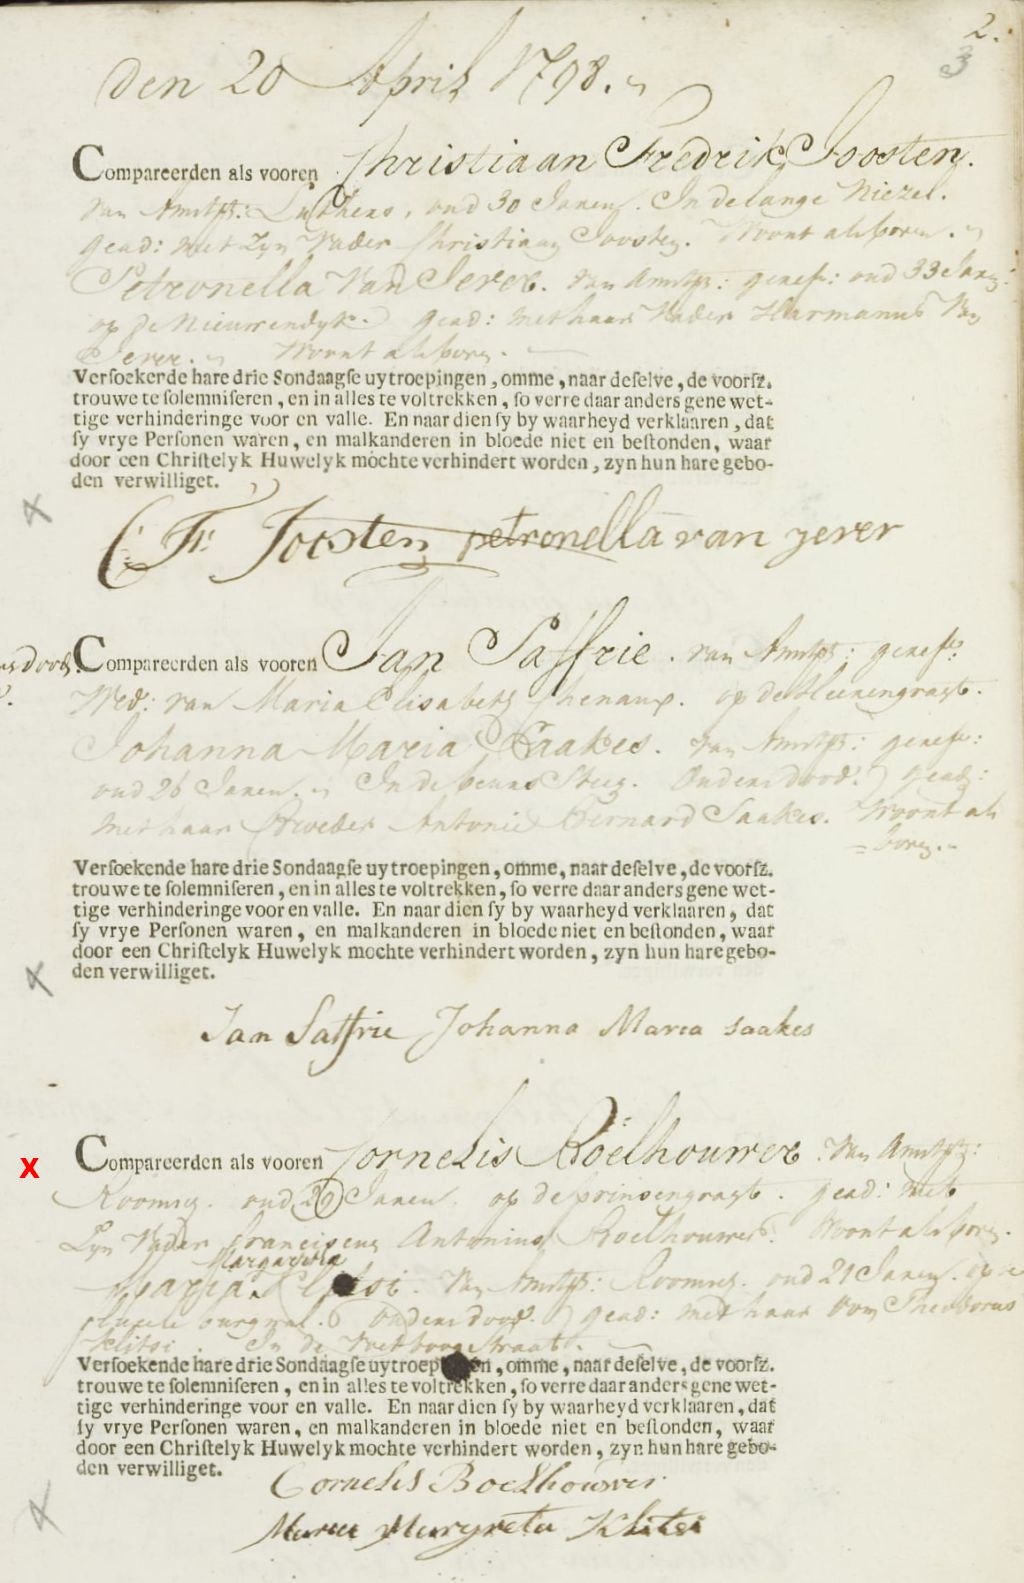 2.
3
den 20 April 1798.
Compareerden als vooren Christiaan Fredrik Joosten.
van Amst: Luthers, oud 30 Jaaren. In de lange Niezel.
gead: met Zyn Vader Christiaan Joosten. Woont als boven.
Petronella van Jever. van Amst: geref: oud 33 Jaren
op de Nieuwendyk. gead: met haar Vader Harmanus Van
Jever. Woont als boven.
Versoekende hare drie Sondaagse uytroepingen, omme, naar deselve, de voorsz.
trouwe te solemniseren, en in alles te voltrekken, so verre daar anders gene wet-
tige verhinderinge voor en valle. En naar dien sy by waarheyd verklaaren, dat
sy vrye Personen waren, en malkanderen in bloede niet en bestonden, waar
door een Christelyk Huwelyk mochte verhindert worden, zyn hun hare gebo-
den verwilliget.
C: F: Joosten petronella van jever
Compareerden als vooren Jan Saffrie. van Amst: geref:
Wed: van Maria Elisabeth Chenaux. op de Heerengragt.
Johanna Maria Saakes. van Amst: geref:
oud 26 Jaren. In de Steeg. Ouders dood. gead:
met haar Broeder Antonie Bernard Saakes. Woont als
boven.
Versoekende hare drie Sondaagse uytroepingen, omme, naar deselve, de voorsz.
trouwe te solemniseren, en in alles te voltrekken, so verre daar anders gene wet-
tige verhinderinge voor en valle. En naar dien sy by waarheyd verklaaren, dat
sy vrye Personen waren, en malkanderen in bloede niet en bestonden, waar
door een Christelyk Huwelyk mochte verhindert worden, zyn hun hare gebo-
den verwilliget.
Jan Saffrie Johanna Maria Saakes
X Compareerden als vooren Cornelis Boelhouwer. van Amst:
Rooms. oud 29 Jaren. op de prinsengragt. gead: met
Zyn Vader Franciscus Antonius Boelhouwer. Woont als boven.
Margareta
Maria Klitsi. van Amst: Rooms. oud 21 Jaren. op de
burgwal. Ouders dood. gead: met haar Oom Theodorus
Klitsi. In de straat.
Versoekende hare drie Sondaagse uytroepingen, omme, naar deselve, de voorsz.
trouwe te solemniseren, en in alles te voltrekken, so verre daar anders gene wet-
tige verhinderinge voor en valle. En naar dien sy by waarheyd verklaaren, dat
sy vrye Personen waren, en malkanderen in bloede niet en bestonden, waar
door een Christelyk Huwelyk mochte verhindert worden, zyn hun hare gebo-
den verwilliget.
Cornelis Boelhouwer
Maria Margreta Klitsi